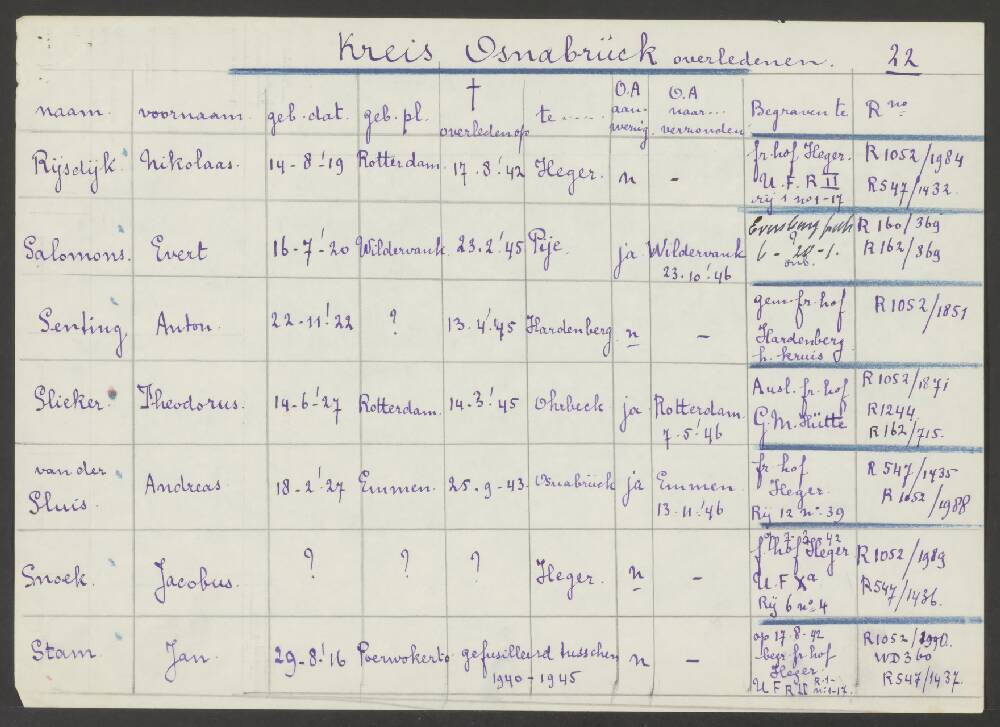 Kreis Osnabrück overledenen. 22
naam. voornaam. geb. dat. geb. pl. † overleden op te ..... O.A aan- wezig. O.A naar... verzonden Begraven te R no
Rijsdijk. Nikolaas. 14-8-'19 Rotterdam. 17.8.'42 Heger. n - fr. hof Heger. U.F. R II rij 1 no 1-17 R1052/1984 R547/1432.
Salomons. Evert 16-7-'20 Wildervank 23.2.'45 Pije. ja Wildervank 23.10.'46 6 - 20 -1. R 160/369 R 162/869
Senting. Anton. 22-11-'22 ? 13.4.'45 Hardenberg n - gem. fr. hof Hardenberg h. kruis R1052/1851
Slieker. Theodorus. 14-6-'27 Rotterdam. 14.3.'45 Ohrbeck ja Rotterdam. 7.5.'46 Ausl. fr. hof G.M. Hütte R1052/1871 R1244 R162/715.
van der Sluis. Andreas. 18-2-'27 Emmen. 25.9-43. Osnabrück ja Emmen. 13.11.'46 fr. hof Heger. Rij 12 no. 39 R 547/1435 R 1052/1988
Snoek. Jacobus. ? ? ? Heger. n - f. hof Heger U.F Xa Rij 6 no. 4 R1052/1989 R547/1436.
Stam Jan. 29-8-'16 Poerwokerto gefusilleerd tusschen 1940-1945 n - op 17-8-42 begr fr. hof Heger. U F R II R.1- n: 1-17. R1052/1990. WD360 R547/1437.